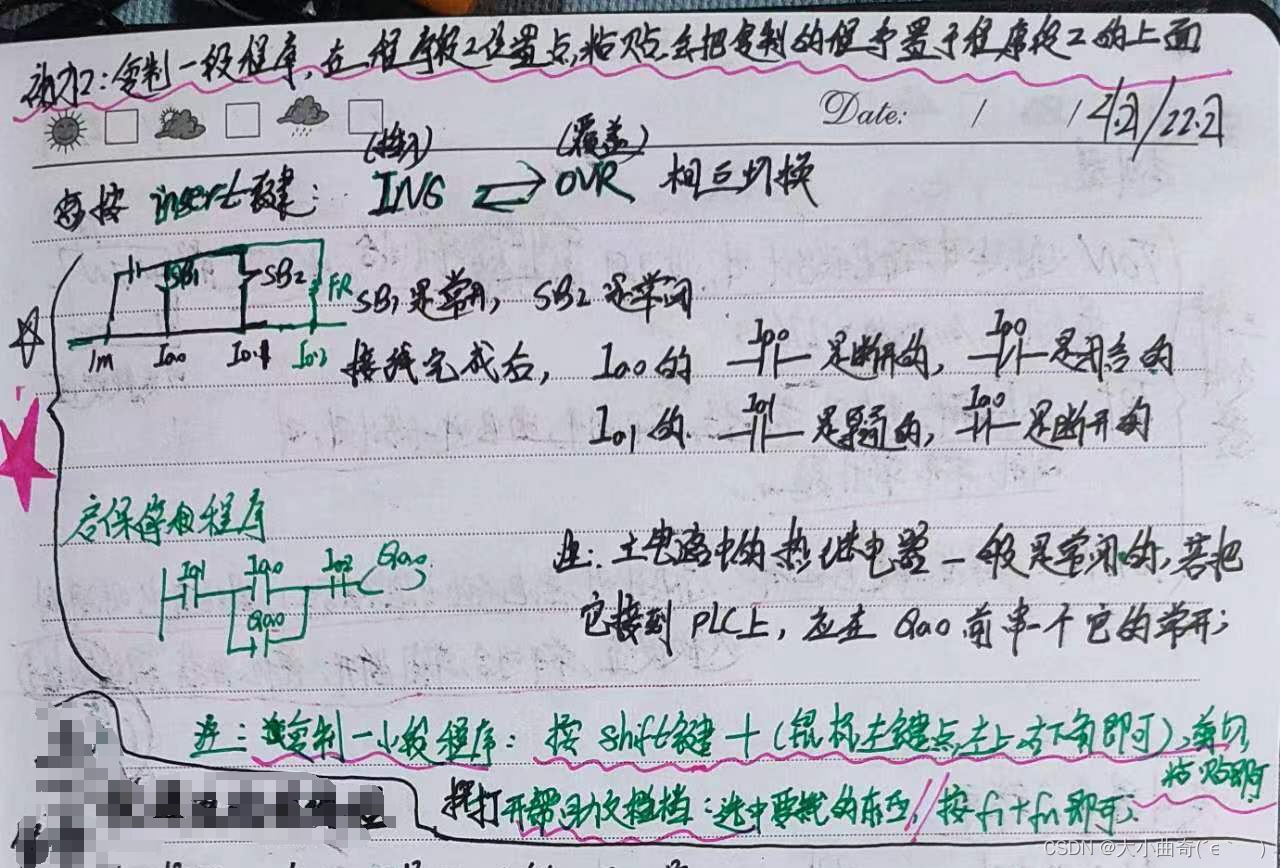 复制一段程序,在程序段2位置点粘贴,会把复制的程序置于程序段2的上面
Date: / / 4.2/22.2
(插入) (覆盖)
按insert键: INS ⇌ OVR 相互切换
SB1 SB2 FR
SB1是常开, SB2是常闭
1m I0.0 I0.1 I0.2
接线完成后, I0.0的 I0.0 是断开的, I0.0 是闭合的
I0.1的 I0.1 是 的, I0.0 是断开的
启保停的程序
I0.1 I0.0 I0.2 Q0.0
Q0.0
注: 主电路中的热继电器一般是常闭的,若把
它接到PLC上, 应在Q0.0前串一个它的常开;
注: 复制一小段程序: 按shift键+(鼠标左键点左上右下角即可),剪切,
粘贴即可
打开帮助文档: 选中要找的东西, // 按f1+fn即可.
CSDN @大小曲奇(ˊεˋ)